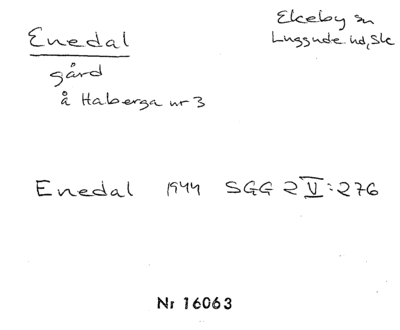 Enedal
Ekeby sn
Luggude hd, Sk
gård
å Haberga nr 3
Enedal 1944 SGG 2 V:276
Nr 16063